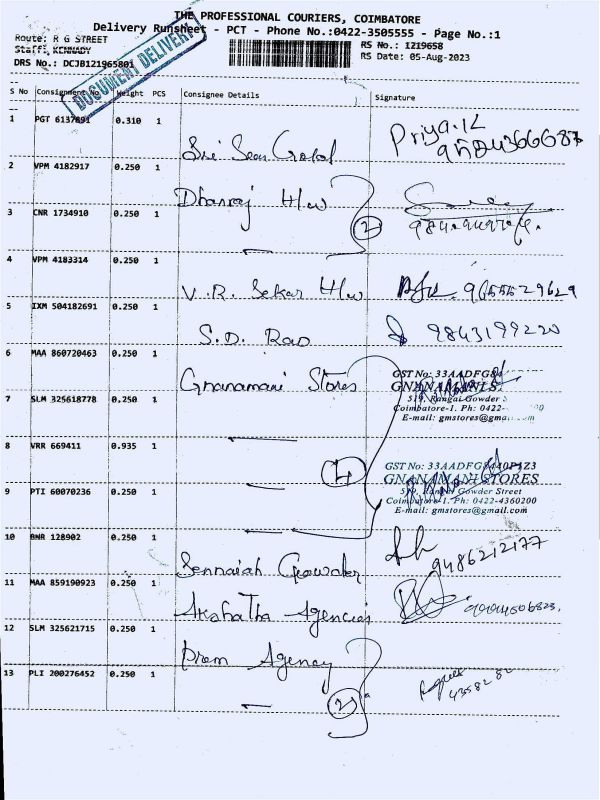 THE PROFESSIONAL COURIERS, COIMBATORE
Delivery Runsheet - PCT - Phone No.:0422-3505555 - Page No.:1
Route: R G STREET
RS No.: 1219658
Staff: KENNADY
RS Date: 05-Aug-2023
DRS No.: DCJB121965801
DOCUMENT DELIVERY
S No Consignment No Weight PCS Consignee Details Signature
1 PGT 6137891 0.310 1 Sri Gopal Priya.K
2 VPM 4182917 0.250 1 Dhanraj H/w
3 CNR 1734910 0.250 1 — 2
4 VPM 4183314 0.250 1 V.R. Sekar H/w 9655529629
5 IXM 504182691 0.250 1 S.D. Rao 9843199220
6 MAA 860720463 0.250 1 Gnanamani Stores
GST No: 33AADFG84
GNANAMANI S
519, Rangai Gowder S
Coimbatore-1. Ph: 0422-
E-mail: gmstores@gma
7 SLM 325618778 0.250 1 —
8 VRR 669411 0.935 1 — 4
GST No: 33AADFG8440P1Z3
GNANAMANI STORES
519, Rangai Gowder Street
Coimbatore-1. Ph: 0422-4360200
E-mail: gmstores@gmail.com
9 PTI 60070236 0.250 1 —
10 BNR 128902 0.250 1 Sennaiah Gowder 9486212177
11 MAA 859190923 0.250 1 Akshatha Agencies
12 SLM 325621715 0.250 1 Prem Agency
13 PLI 200276452 0.250 1 — 2